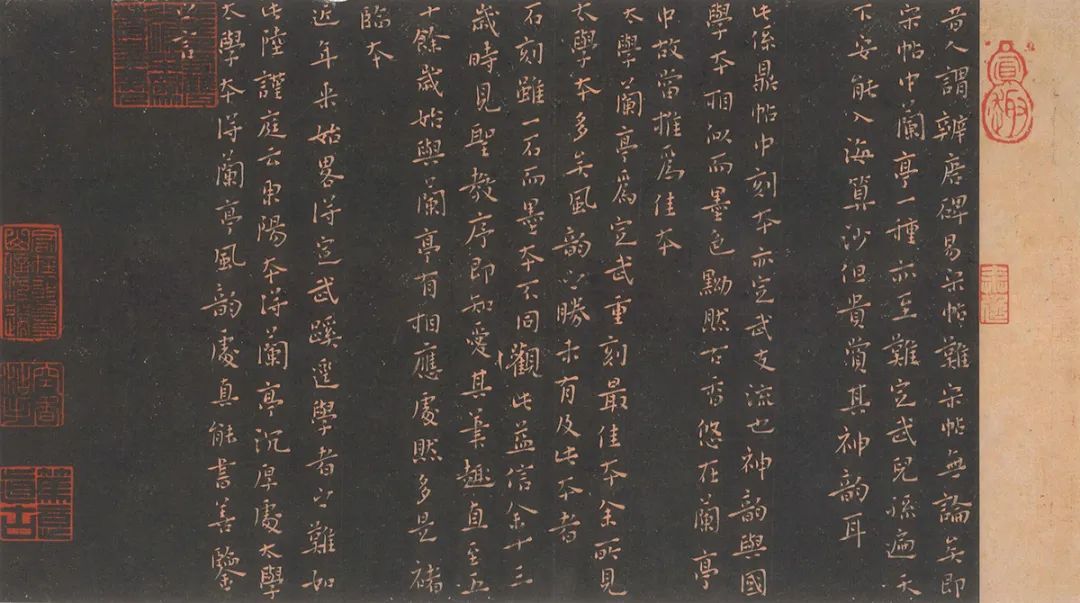 昔人謂辨唐碑易宋帖難宋帖無論矣即
宋帖中蘭亭一種亦至難定武兒孫遍天
下安能入海算沙但貴賞其神韻耳
此係鼎帖中刻本亦定武支流也神韻與國
學本相似而墨色黝然古香悠在蘭亭
中故當推為佳本
太學蘭亭為定武重刻最佳本余所見
太學本多矣風韻之勝未有及此本者
石刻雖一石而墨本不同觀此益信余十三
歲時見聖教序即知愛其筆趣直至五
十餘歲始與蘭亭有相應處然多是褚
臨本
近年來始畧得定武蹊逕學者之難如
此陸謹庭云東陽本得蘭亭沉厚處太學
太學本得蘭亭風韻處真能書善鑒
之言
真趣